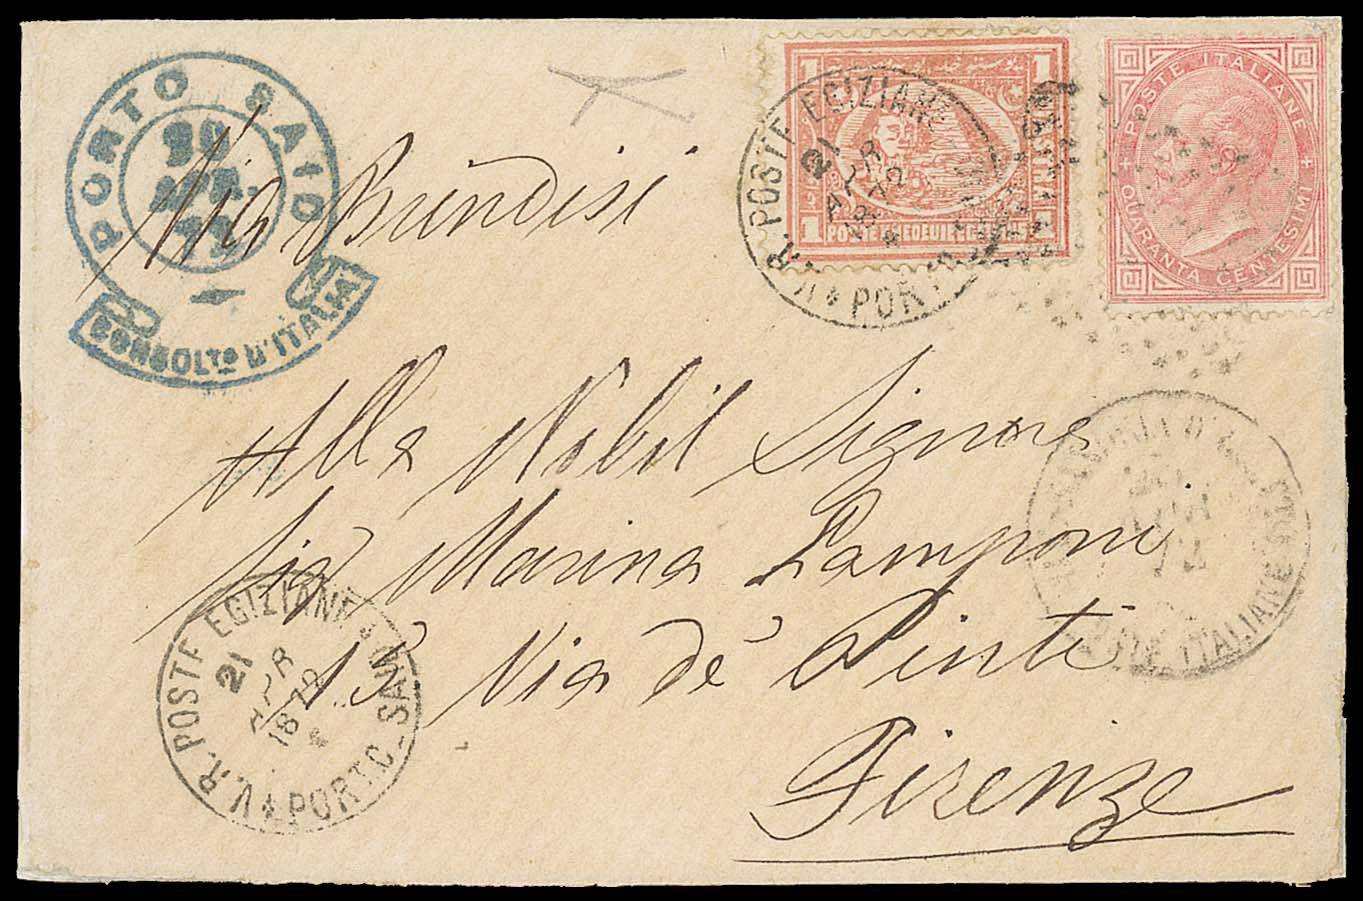 PORTO SAID
20
APR.
72
CONSOLTO D'ITALIA
Via Brindisi
1
1
1
POSTE KHEDEUIE EGIZIANE
V.R. POSTE EGIZIANE
21
APR
1872
PORTO
POSTE ITALIANE
QUARANTA CENTESIMI
Alla Nobil Signora
Sig Marina Lamponi
15 Via de' Pinti
Firenze
V.R. POSTE EGIZIANE
21
APR
1872
PORTO_SAID
D'EGITTO
APR
72
POSTE ITALIANE